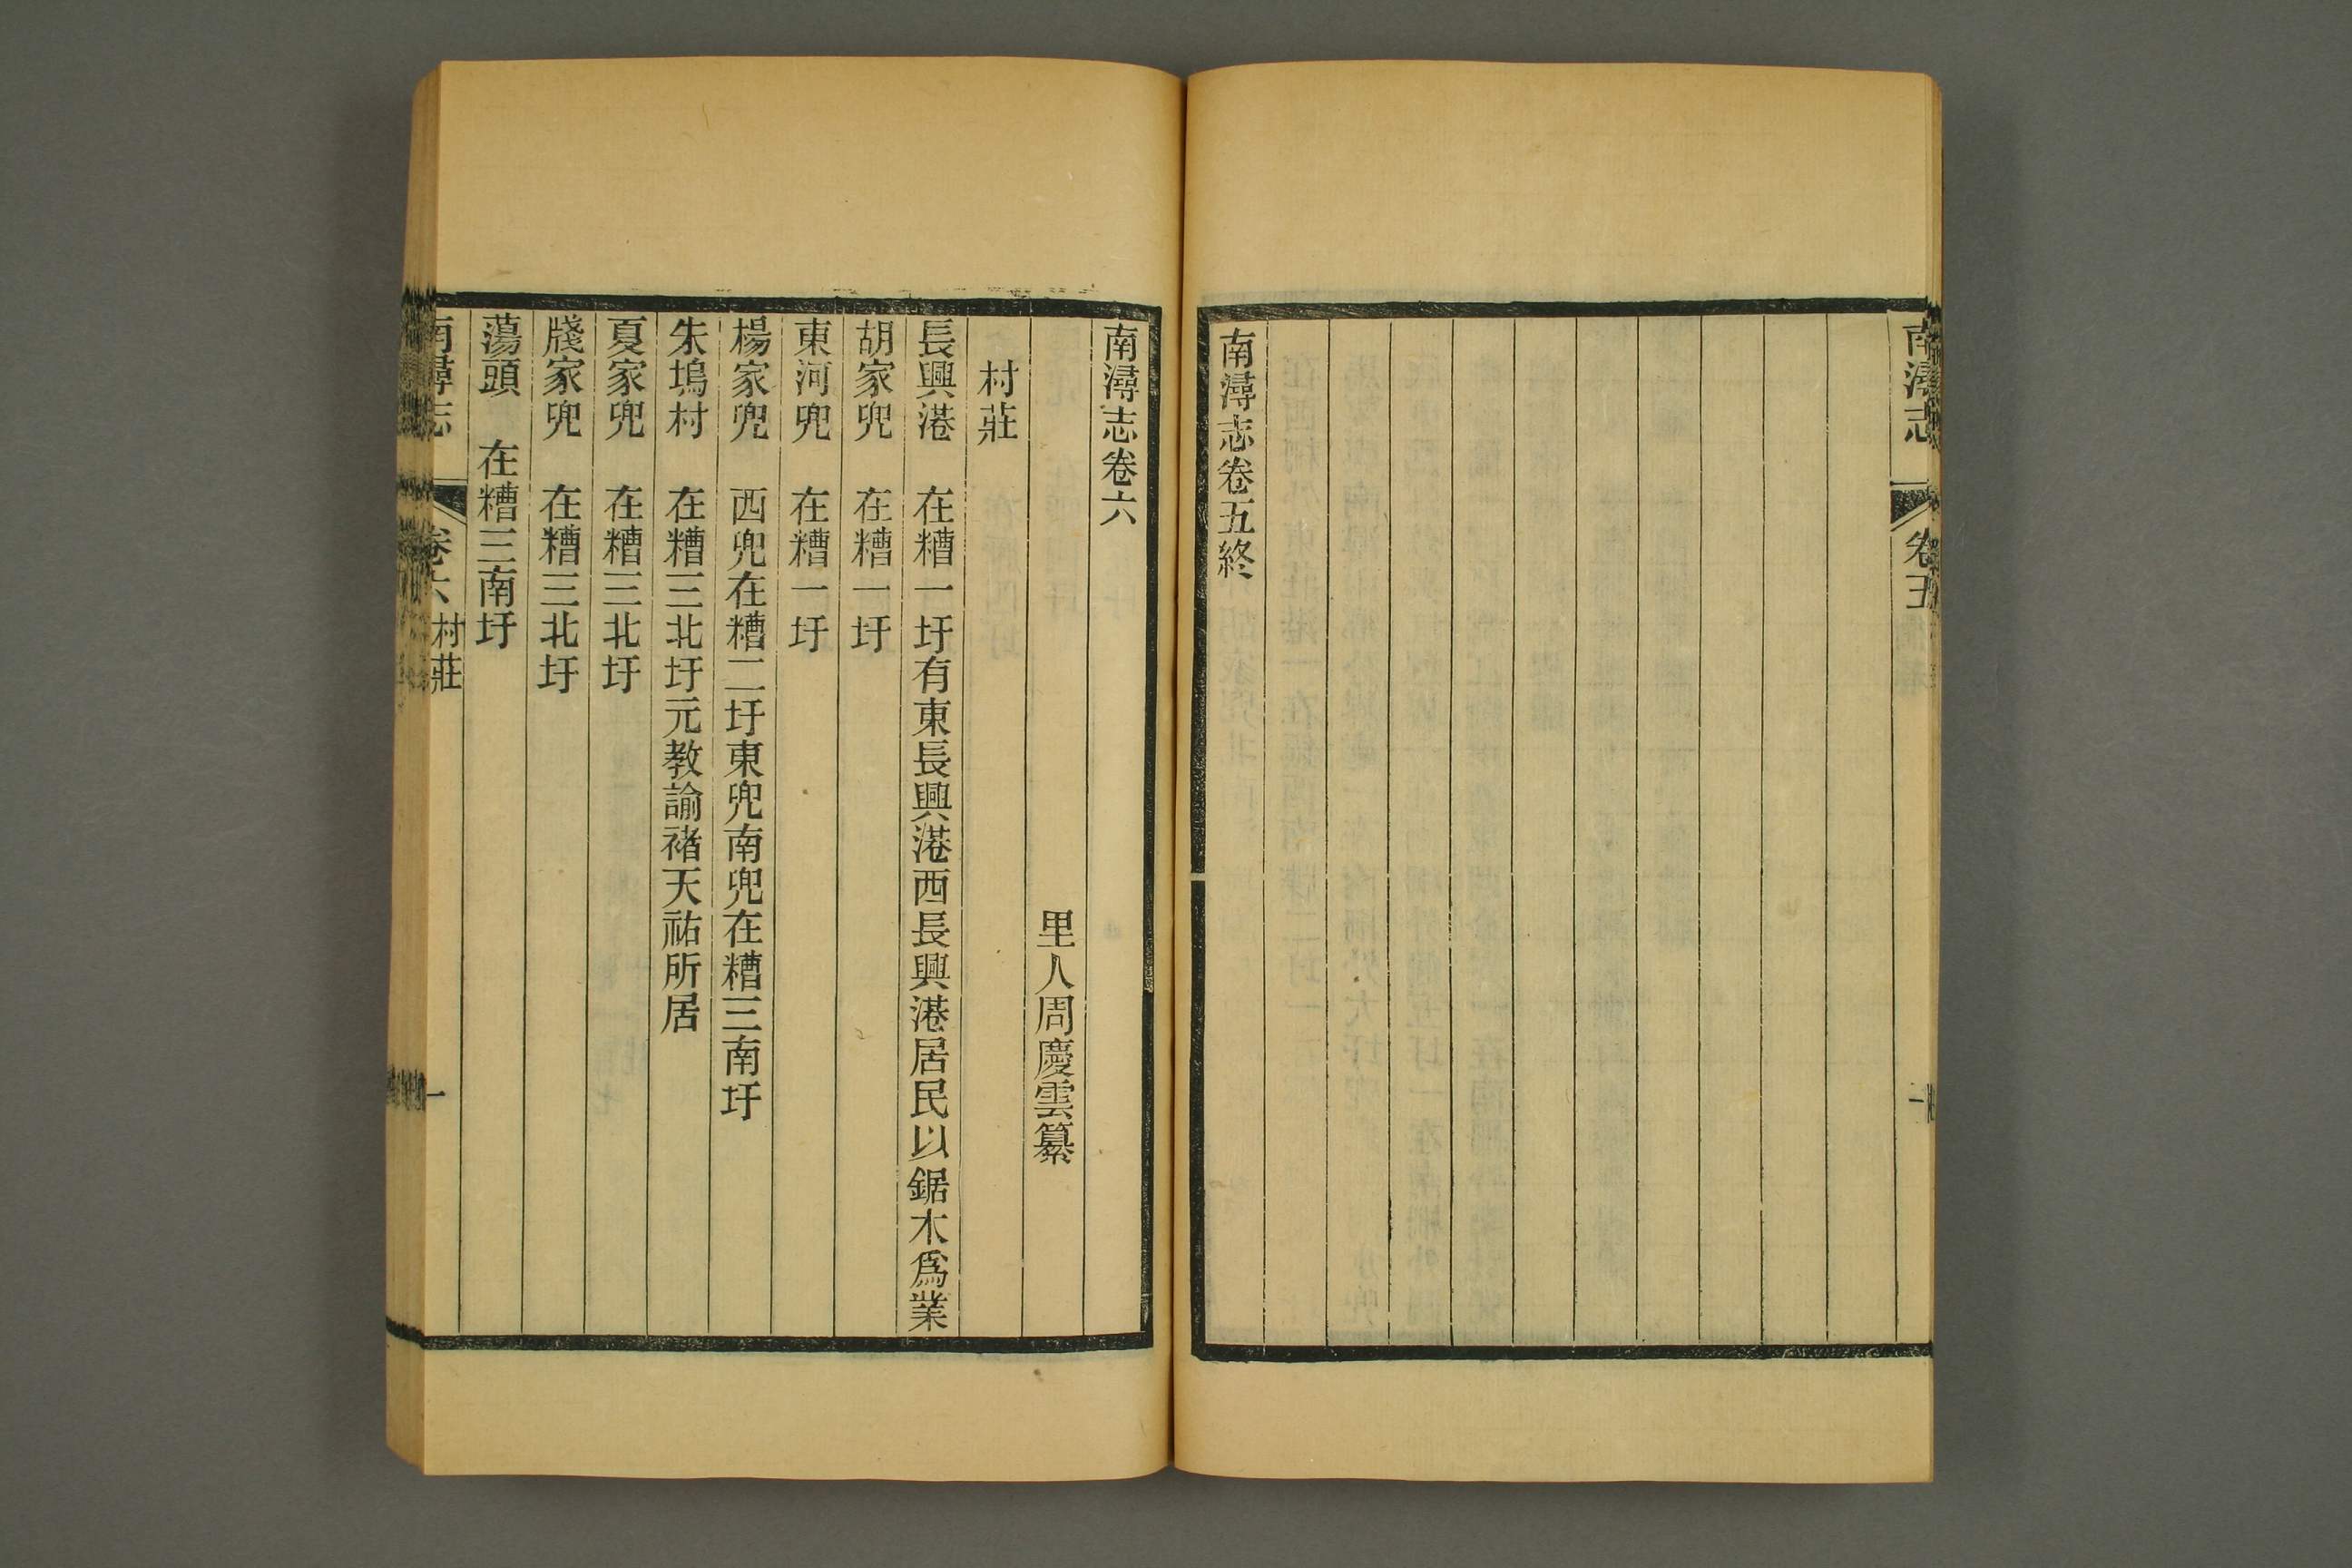 南潯志
卷五
南潯志卷五終
南潯志卷六
里人周慶雲纂
村莊
長興港　在糟一圩有東長興港西長興港居民以鋸木爲業
胡家兜　在糟一圩
東河兜　在糟一圩
楊家兜　西兜在糟二圩東兜南兜在糟三南圩
朱塢村　在糟三北圩元教諭褚天祐所居
夏家兜　在糟三北圩
牋家兜　在糟三北圩
蕩頭　在糟三南圩
南潯志　卷六　村莊　一